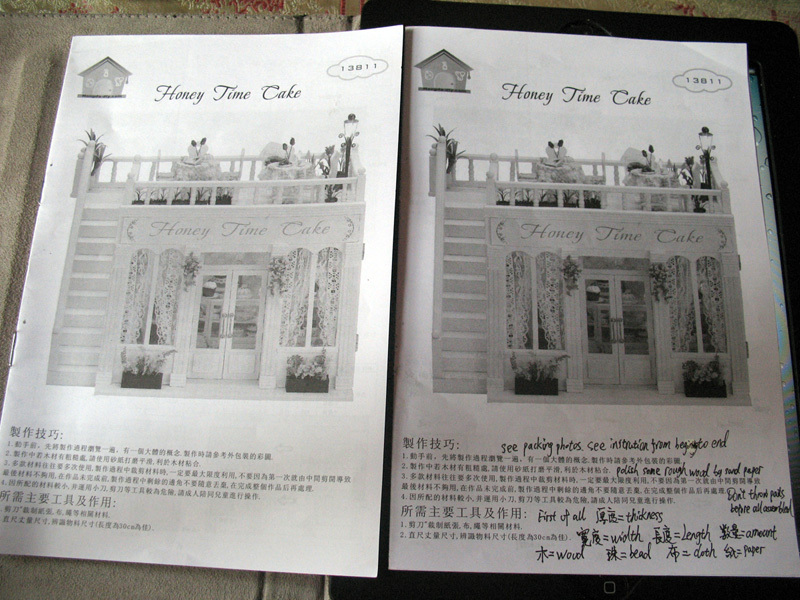 13811
Honey Time Cake
Honey Time Cake
製作技巧:
1.動手前，先將製作過程瀏覽一遍，有一個大體的概念.製作時請參考外包裝的彩圖.
2.製作中若木材有粗糙處,請使用砂紙打磨平滑,利於木材粘合.
3.多款材料往往要多次使用,製作過程中裁剪材料時,一定要最大限度利用,不要因為第一次就由中間剪開導致
最後材料不夠用,在作品未完成前,製作過程中剩餘的邊角不要隨意丟棄,在完成整個作品后再處理.
4.因所配的材料較小,并運用小刀,剪刀等工具較為危險,請成人陪同兒童進行操作.
所需主要工具及作用:
1.剪刀 裁制紙張,布,繩等相關材料.
2.直尺丈量尺寸,辨識物料尺寸(長度為30cm為佳).
13811
Honey Time Cake
Honey Time Cake
製作技巧:
see packing photos. see instrution from begining to end
1.動手前，先將製作過程瀏覽一遍，有一個大體的概念.製作時請參考外包裝的彩圖.
2.製作中若木材有粗糙處,請使用砂紙打磨平滑,利於木材粘合. polish some rough wood by sand paper
3.多款材料往往要多次使用,製作過程中裁剪材料時,一定要最大限度利用,不要因為第一次就由中間剪開導致
最後材料不夠用,在作品未完成前,製作過程中剩餘的邊角不要隨意丟棄,在完成整個作品后再處理. Don't throw
before all
4.因所配的材料較小,并運用小刀,剪刀等工具較為危險,請成人陪同兒童進行操作.
所需主要工具及作用: First of all 厚度=thickness
1.剪刀 裁制紙張,布,繩等相關材料.
寬度=width 長度=Length 數量=amount
2.直尺丈量尺寸,辨識物料尺寸(長度為30cm為佳).
木=wood 珠=bead 布=cloth 紙=paper